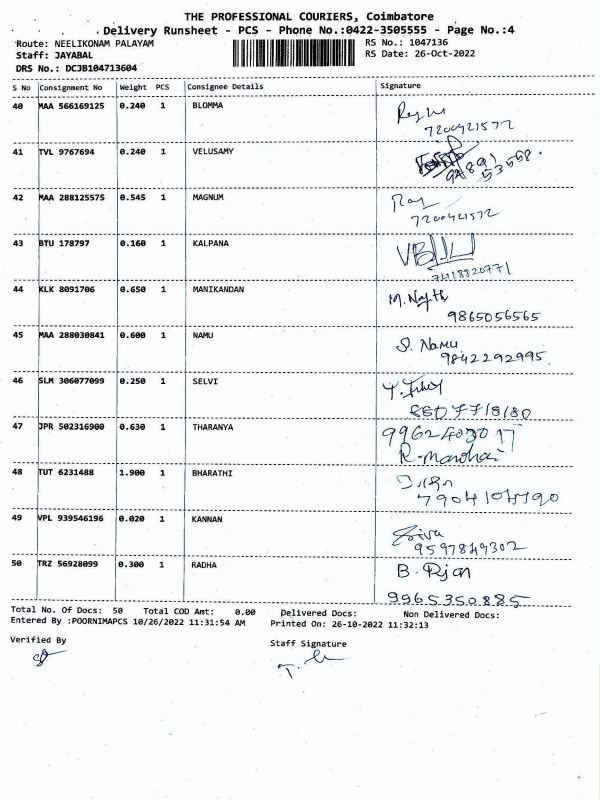 THE PROFESSIONAL COURIERS, Coimbatore
Delivery Runsheet - PCS - Phone No.:0422-3505555 - Page No.:4
Route: NEELIKONAM PALAYAM RS No.: 1047136
Staff: JAYABAL RS Date: 26-Oct-2022
DRS No.: DCJB104713604
S No Consignment No Weight PCS Consignee Details Signature
40 MAA 566169125 0.240 1 BLOMMA
7200421572
41 TVL 9767694 0.240 1 VELUSAMY
42 MAA 288125575 0.545 1 MAGNUM
7200421572
43 BTU 178797 0.160 1 KALPANA
7418820771
44 KLK 8091706 0.650 1 MANIKANDAN
9865056565
45 MAA 288030841 0.600 1 NAMU S. Namu
9842292995.
46 SLM 306077099 0.250 1 SELVI
47 JPR 502316900 0.630 1 THARANYA
48 TUT 6231488 1.900 1 BHARATHI
49 VPL 939546196 0.020 1 KANNAN Siva
9597849302
50 TRZ 56928099 0.300 1 RADHA
9965350885
Total No. Of Docs: 50 Total COD Amt: 0.00 Delivered Docs: Non Delivered Docs:
Entered By :POORNIMAPCS 10/26/2022 11:31:54 AM Printed On: 26-10-2022 11:32:13
Verified By Staff Signature